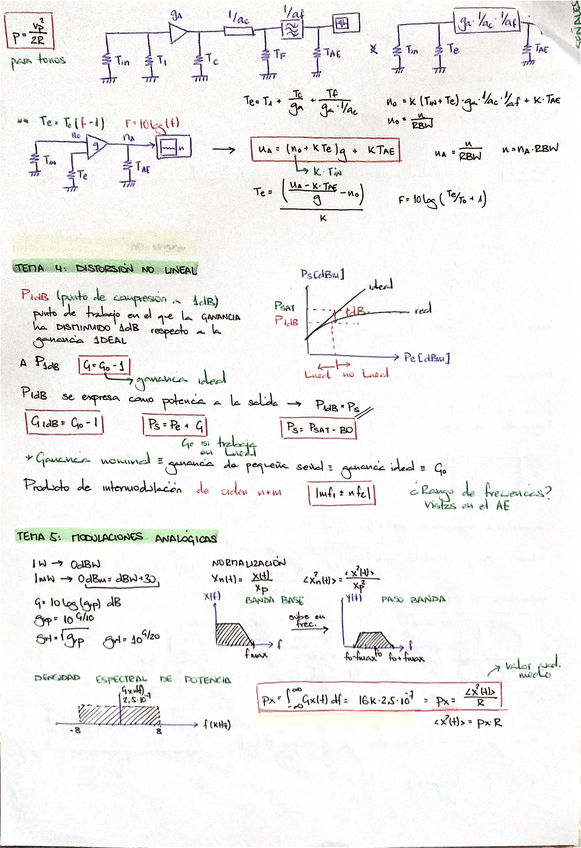 P = Vp² / 2R
para tonos
gA 1/ac 1/af
Tin T1 Tc TF TAE
gA · 1/ac · 1/af
Tin Te TAE
Te = T1 + Tc/gA + Tf/(gA · 1/ac)
no = K (Tin + Te) · gA · 1/ac · 1/af + K · TAE
no = n/RBW
** Te = To (f - 1) F = 10 log (f)
no g nA n
Tin Te TAE
→ nA = (no + K Te) g + K TAE
→ K · Tin
nA = n/RBW n = nA · RBW
Te = ((nA - K · TAE)/g - no) / K
F = 10 log (Te/To + 1)
TEMA 4: DISTORSIÓN NO LINEAL
P1dB (punto de compresión a 1dB)
punto de trabajo en el que la GANANCIA
ha DISMINUIDO 1dB respecto a la
ganancia IDEAL
Ps [dBm]
ideal
PSAT 1dB real
P1dB
Pe [dBm]
Lineal no Lineal
A P1dB G = Go - 1
→ ganancia ideal
P1dB se expresa como potencia a la salida → P1dB = Ps
G1dB = Go - 1 Ps = Pe + G Ps = PSAT - BO
Go si trabaja
en lineal
* Ganancia nominal ≡ ganancia de pequeña señal ≡ ganancia ideal ≡ Go
Producto de intermodulación de orden n+m |mf1 ± nf2| ¿Rango de frecuencias?
vistas en el AE
TEMA 5: MODULACIONES ANALÓGICAS
1W → 0dBW
1mW → 0dBm = dBW + 30
NORMALIZACIÓN
Xn(t) = X(t)/Xp <X²n(t)> = <X²(t)>/Xp²
G = 10 log (gp) dB
gp = 10^G/10
gv = √gp gv = 10^G/20
X(f) BANDA BASE
f
fmax
sube en
frec.
Y(f) PASO BANDA
f
fo-fmax fo fo+fmax
DENSIDAD ESPECTRAL DE POTENCIA
Gx(f)
2,5·10⁻⁷
-8 8 f (KHz)
valor cuad.
medio
Px = ∫-∞^∞ Gx(f) df = 16K · 2,5 · 10⁻⁷ = Px = <X²(t)>/R
<X²(t)> = Px · R